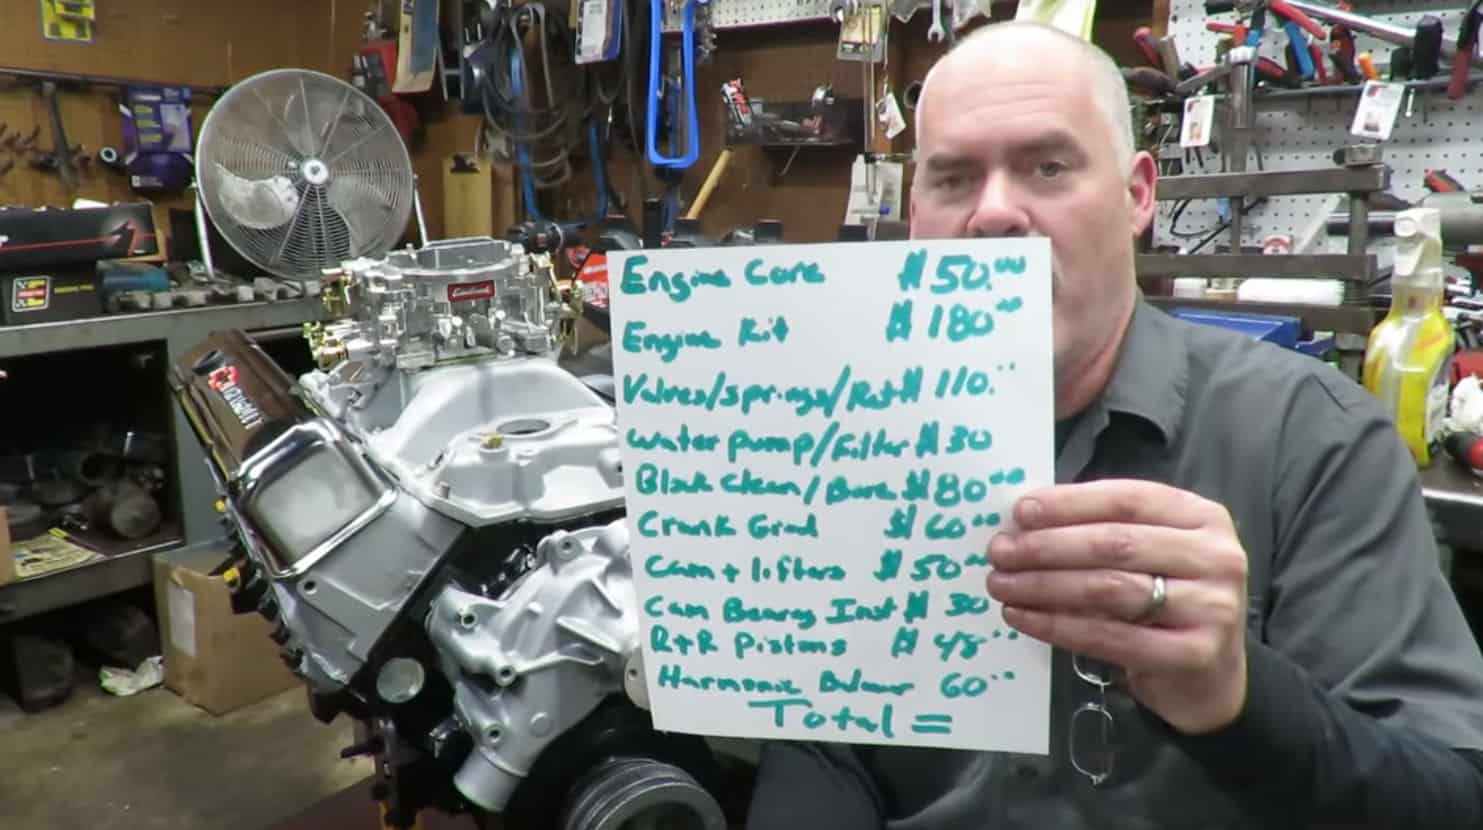 Engine Core $50.00
Engine Kit $180.00
Valves/springs/Ret $110.00
Water pump/Filter $30
Block Clean/Bore $80.00
Crank Grnd $60.00
Cam + lifters $50.00
Cam Bearing Inst $30
R+R Pistons $48.00
Harmonic Balancer 60.00
Total =
Edelbrock
CHEVROLET